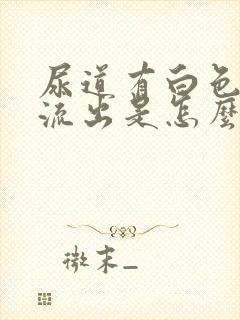 尿道有白色
流出是怎麼
微末_